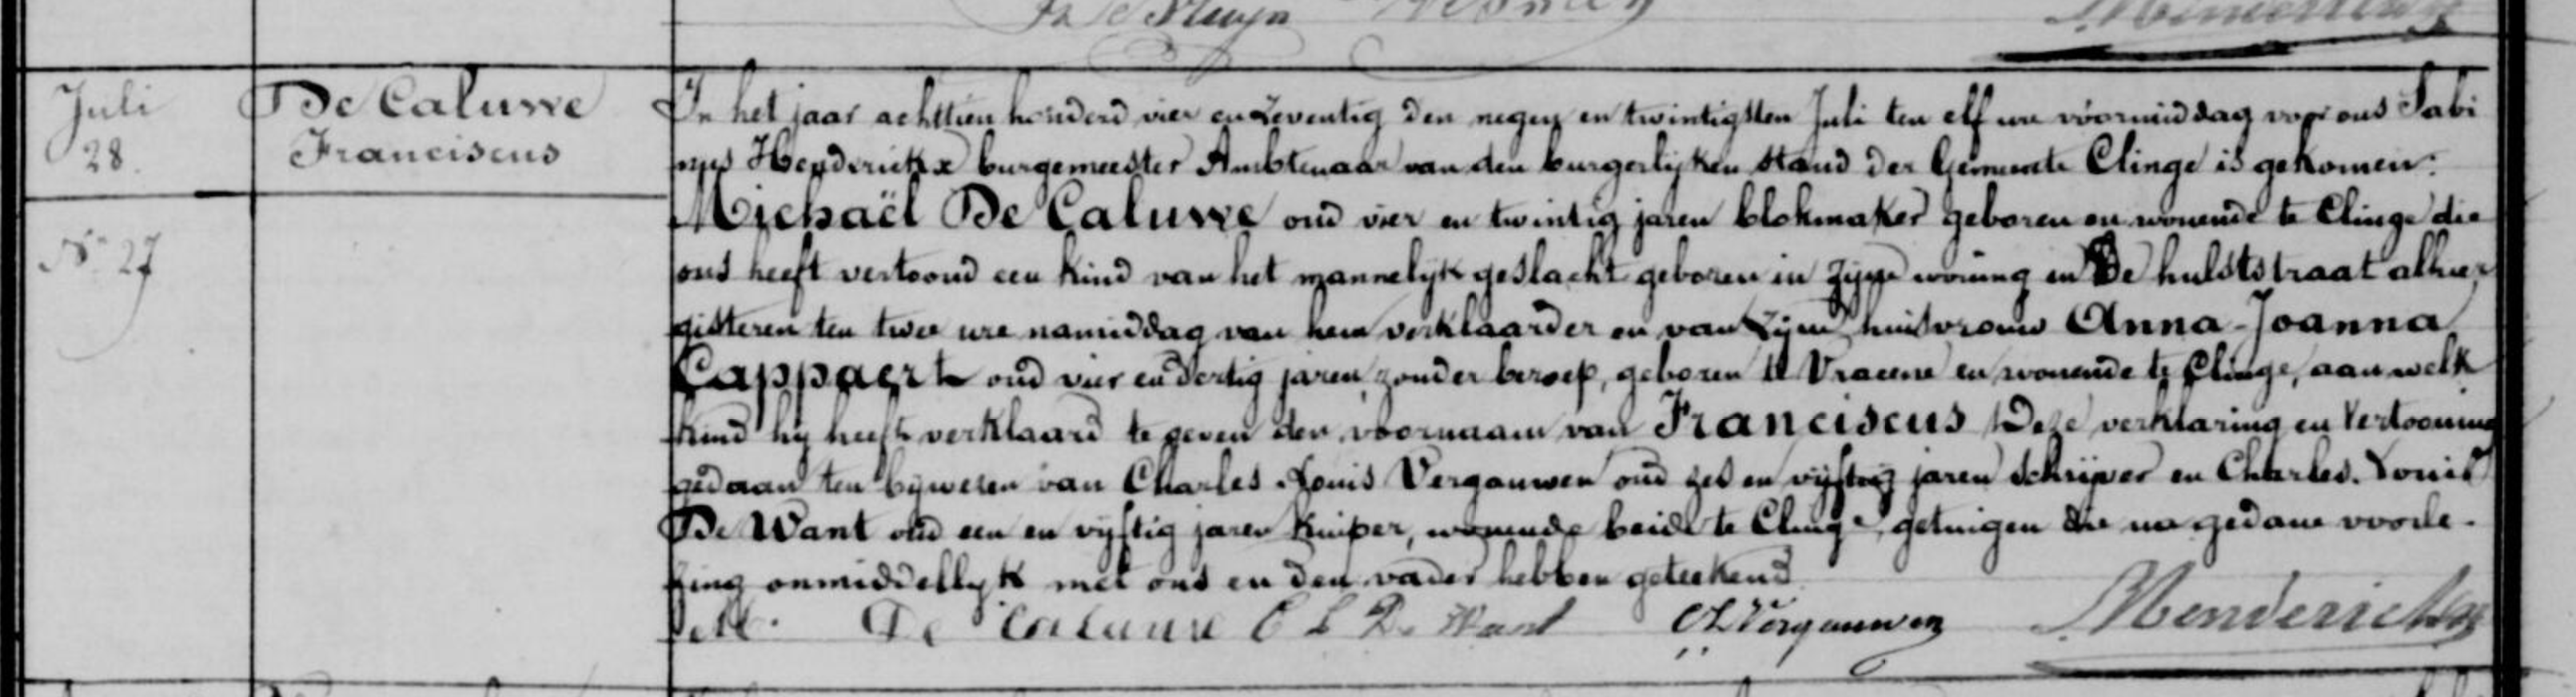 Juli
28.
De Caluwe
Franciscus
No 27
In het jaar achttien honderd vier en zeventig den negen en twintigsten Juli ten elf ure voormiddag voor ons Sabi
nus Henderickx burgemeester Ambtenaar van den burgerlyken stand der Gemeente Clinge is gekomen:
Michaël De Caluwe oud vier en twintig jaren blokmaker geboren en wonende te Clinge die
ons heeft vertoond een kind van het mannelyk geslacht geboren in zyne woning in De hulststraat alhier
gisteren ten twee ure namiddag van hem verklaarder en van zyne huisvrouw Anna-Joanna
Cappaert oud vier en dertig jaren, zonder beroep, geboren te Vracene en wonende te Clinge, aan welk
kind hy heeft verklaard te geven den voornaam van Franciscus Deze verklaring en Vertooning
gedaan ten bywesen van Charles Louis Vergauwen oud zes en vyftig jaren schryver en Charles. Louis
De Want oud een en vyftig jaren kuiper, wonende beide te Clinge, getuigen die na gedane voorle-
zing onmiddellyk met ons en den vader hebben geteekend
M. De Caluwe C L De Want CL Vergauwen Henderickx